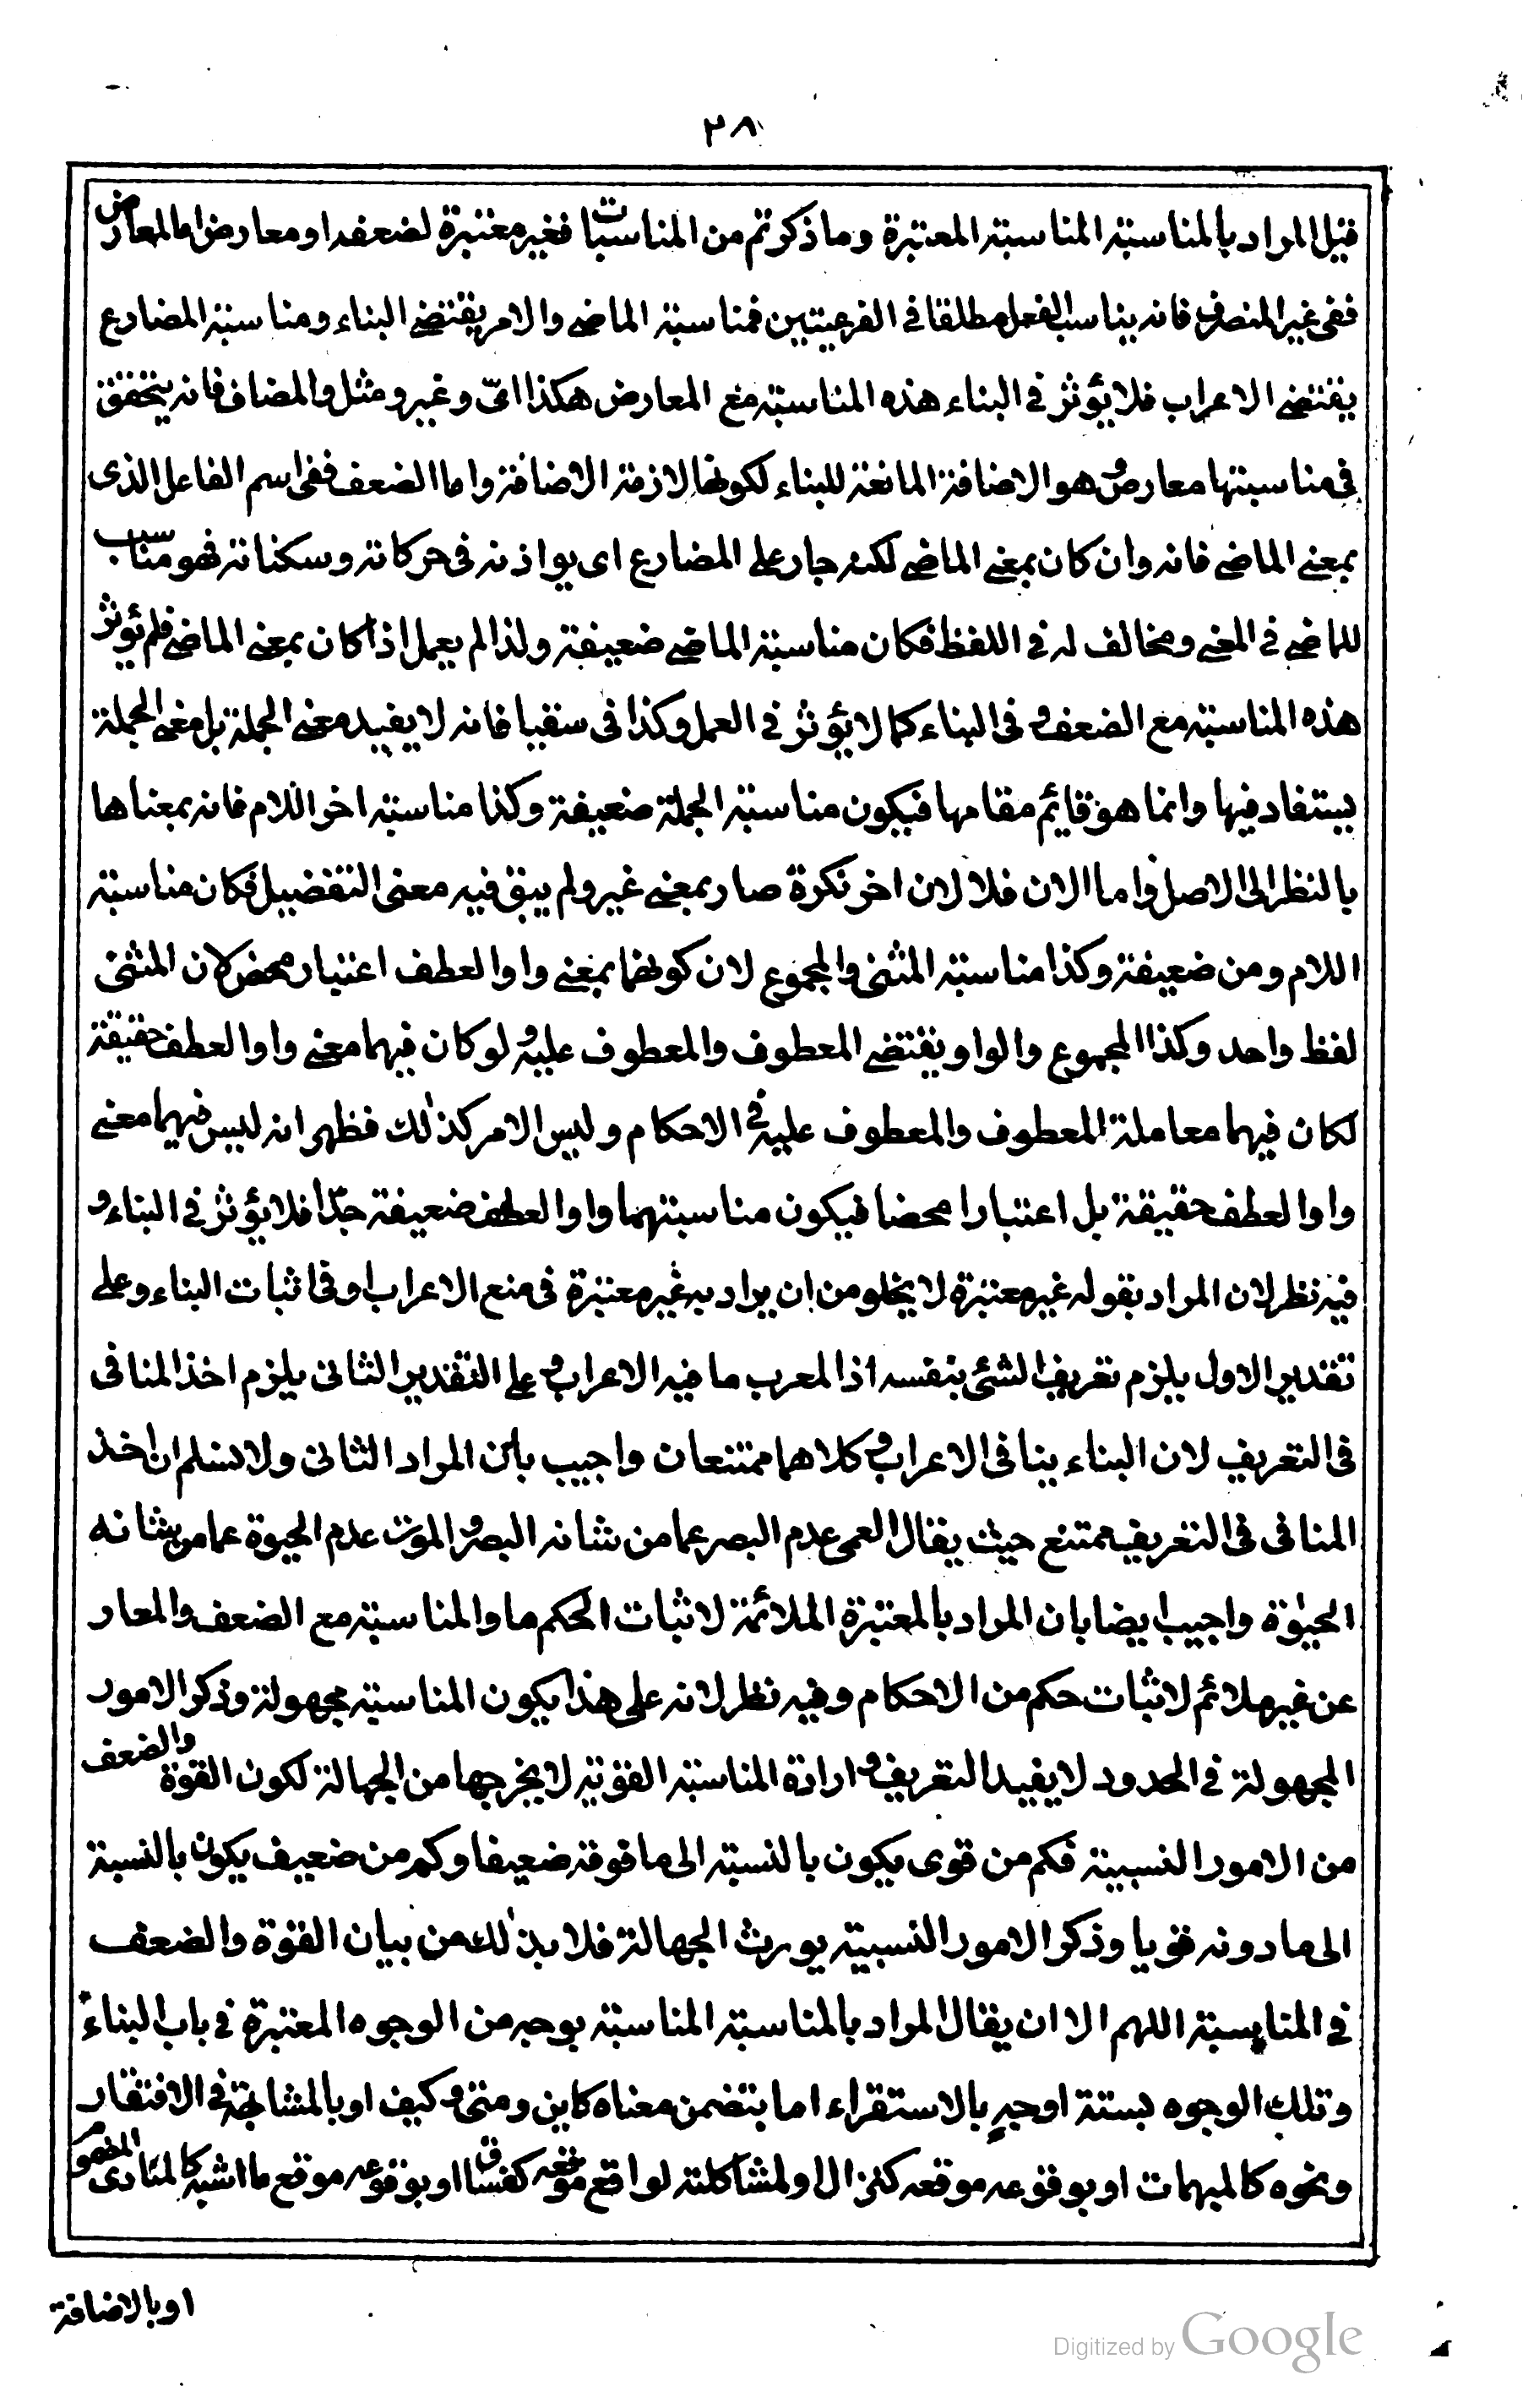 ٣٨
قيل المراد بالمناسبة المناسبة المعتبرة وما ذكرتم من المناسبات فغير معتبرة لضعف او معارض اما المعارض
ففى غير المنصرف فانه يناسب الفعل مطلقا فى الفرعيتين فمناسبة الماضى والامر يقتضى البناء ومناسبة المضارع
يقتضى الاعراب فلا يؤثر فى البناء هذه المناسبة مع المعارض هكذا اىّ وغير ومثل والمضاف فانه يتحقق
فى مناسبتها معارض وهو الاضافة المانعة للبناء لكونها لازمة الاضافة واما الضعف ففى اسم الفاعل الذى
بمعنى الماضى فانه وان كان بمعنى الماضى لكنه جار على المضارع اى يوازنه فى حركاته وسكناته فهو مناسب
للماضى فى المعنى ومخالف له فى اللفظ فكان مناسبة الماضى ضعيفة ولذا لم يعمل اذا كان بمعنى الماضى فلم يؤثر
هذه المناسبة مع الضعف فى البناء كما لا يؤثر فى العمل وكذا فى سقيا فانه لا يفيد معنى الجملة بل معنى الجملة
يستفاد فيها وانما هو قايم مقامها فيكون مناسبة الجملة ضعيفة وكذا مناسبة اخر اللام فانه بمعناها
بالنظر الى الاصل واما الان فلا لان اخر نكرة صار بمعنى غير ولم يبق فيه معنى التفضيل فكان مناسبة
اللام ومن ضعيفة وكذا مناسبة المثنى والمجموع لان كونهما بمعنى واو العطف اعتبار محض لان المثنى
لفظ واحد وكذا المجموع والواو يقتضى المعطوف والمعطوف عليه ولو كان فيهما معنى واو العطف حقيقة
لكان فيهما معاملة المعطوف والمعطوف عليه فى الاحكام وليس الامر كذلك فظهر انه ليس فيهما معنى
واو العطف حقيقة بل اعتبارا محضا فيكون مناسبتهما واو العطف ضعيفة جدّا فلا يؤثر فى البناء و
فيه نظر لان المراد بقوله غير معتبرة لا يخلو من ان يراد به غير معتبرة فى منع الاعراب او فى اثبات البناء وعلى
تقدير الاول يلزم تعريف الشئ بنفسه اذ المعرب ما فيه الاعراب و على التقدير الثانى يلزم اخذ المنافى
فى التعريف لان البناء ينافى الاعراب و كلاهما ممتنعان واجيب بأن المراد الثانى ولا نسلم ان اخذ
المنافى فى التعريف ممتنع حيث يقال العمى عدم البصر عما من شانه البصر و الموت عدم الحيوة عما من شانه
الحيوة واجيب ايضا بان المراد بالمعتبرة الملائمة لاثبات الحكم ما والمناسبة مع الضعف والمعار
عن غير ملائم لاثبات حكم من الاحكام وفيه نظر لانه على هذا يكون المناسبة مجهولة وذكر الامور
المجهولة فى الحدود لا يفيد التعريف و ارادة المناسبة القوية لا يخرجها من الجهالة لكون القوة والضعف
من الامور النسبية فكم من قوى يكون بالنسبة الى ما فوقه ضعيفا وكم من ضعيف يكون بالنسبة
الى ما دونه قويا وذكر الامور النسبية يورث الجهالة فلا بد لك من بيان القوة والضعف
فى المناسبة اللهم الا ان يقال المراد بالمناسبة المناسبة بوجه من الوجوه المعتبرة فى باب البناء
وتلك الوجوه بستة اوجه بالاستقراء اما بتضمن معناه كاين ومتى و كيف او بالمشابهة فى الافتقار
ونحوه كالمبهمات او بوقوعه موقعه كنزال او لمشاكلته لواقع موقعه كفساق او بوقوعه موقع ما اشبه كالمنادى المضموم
او بالاضافة
Digitized by Google